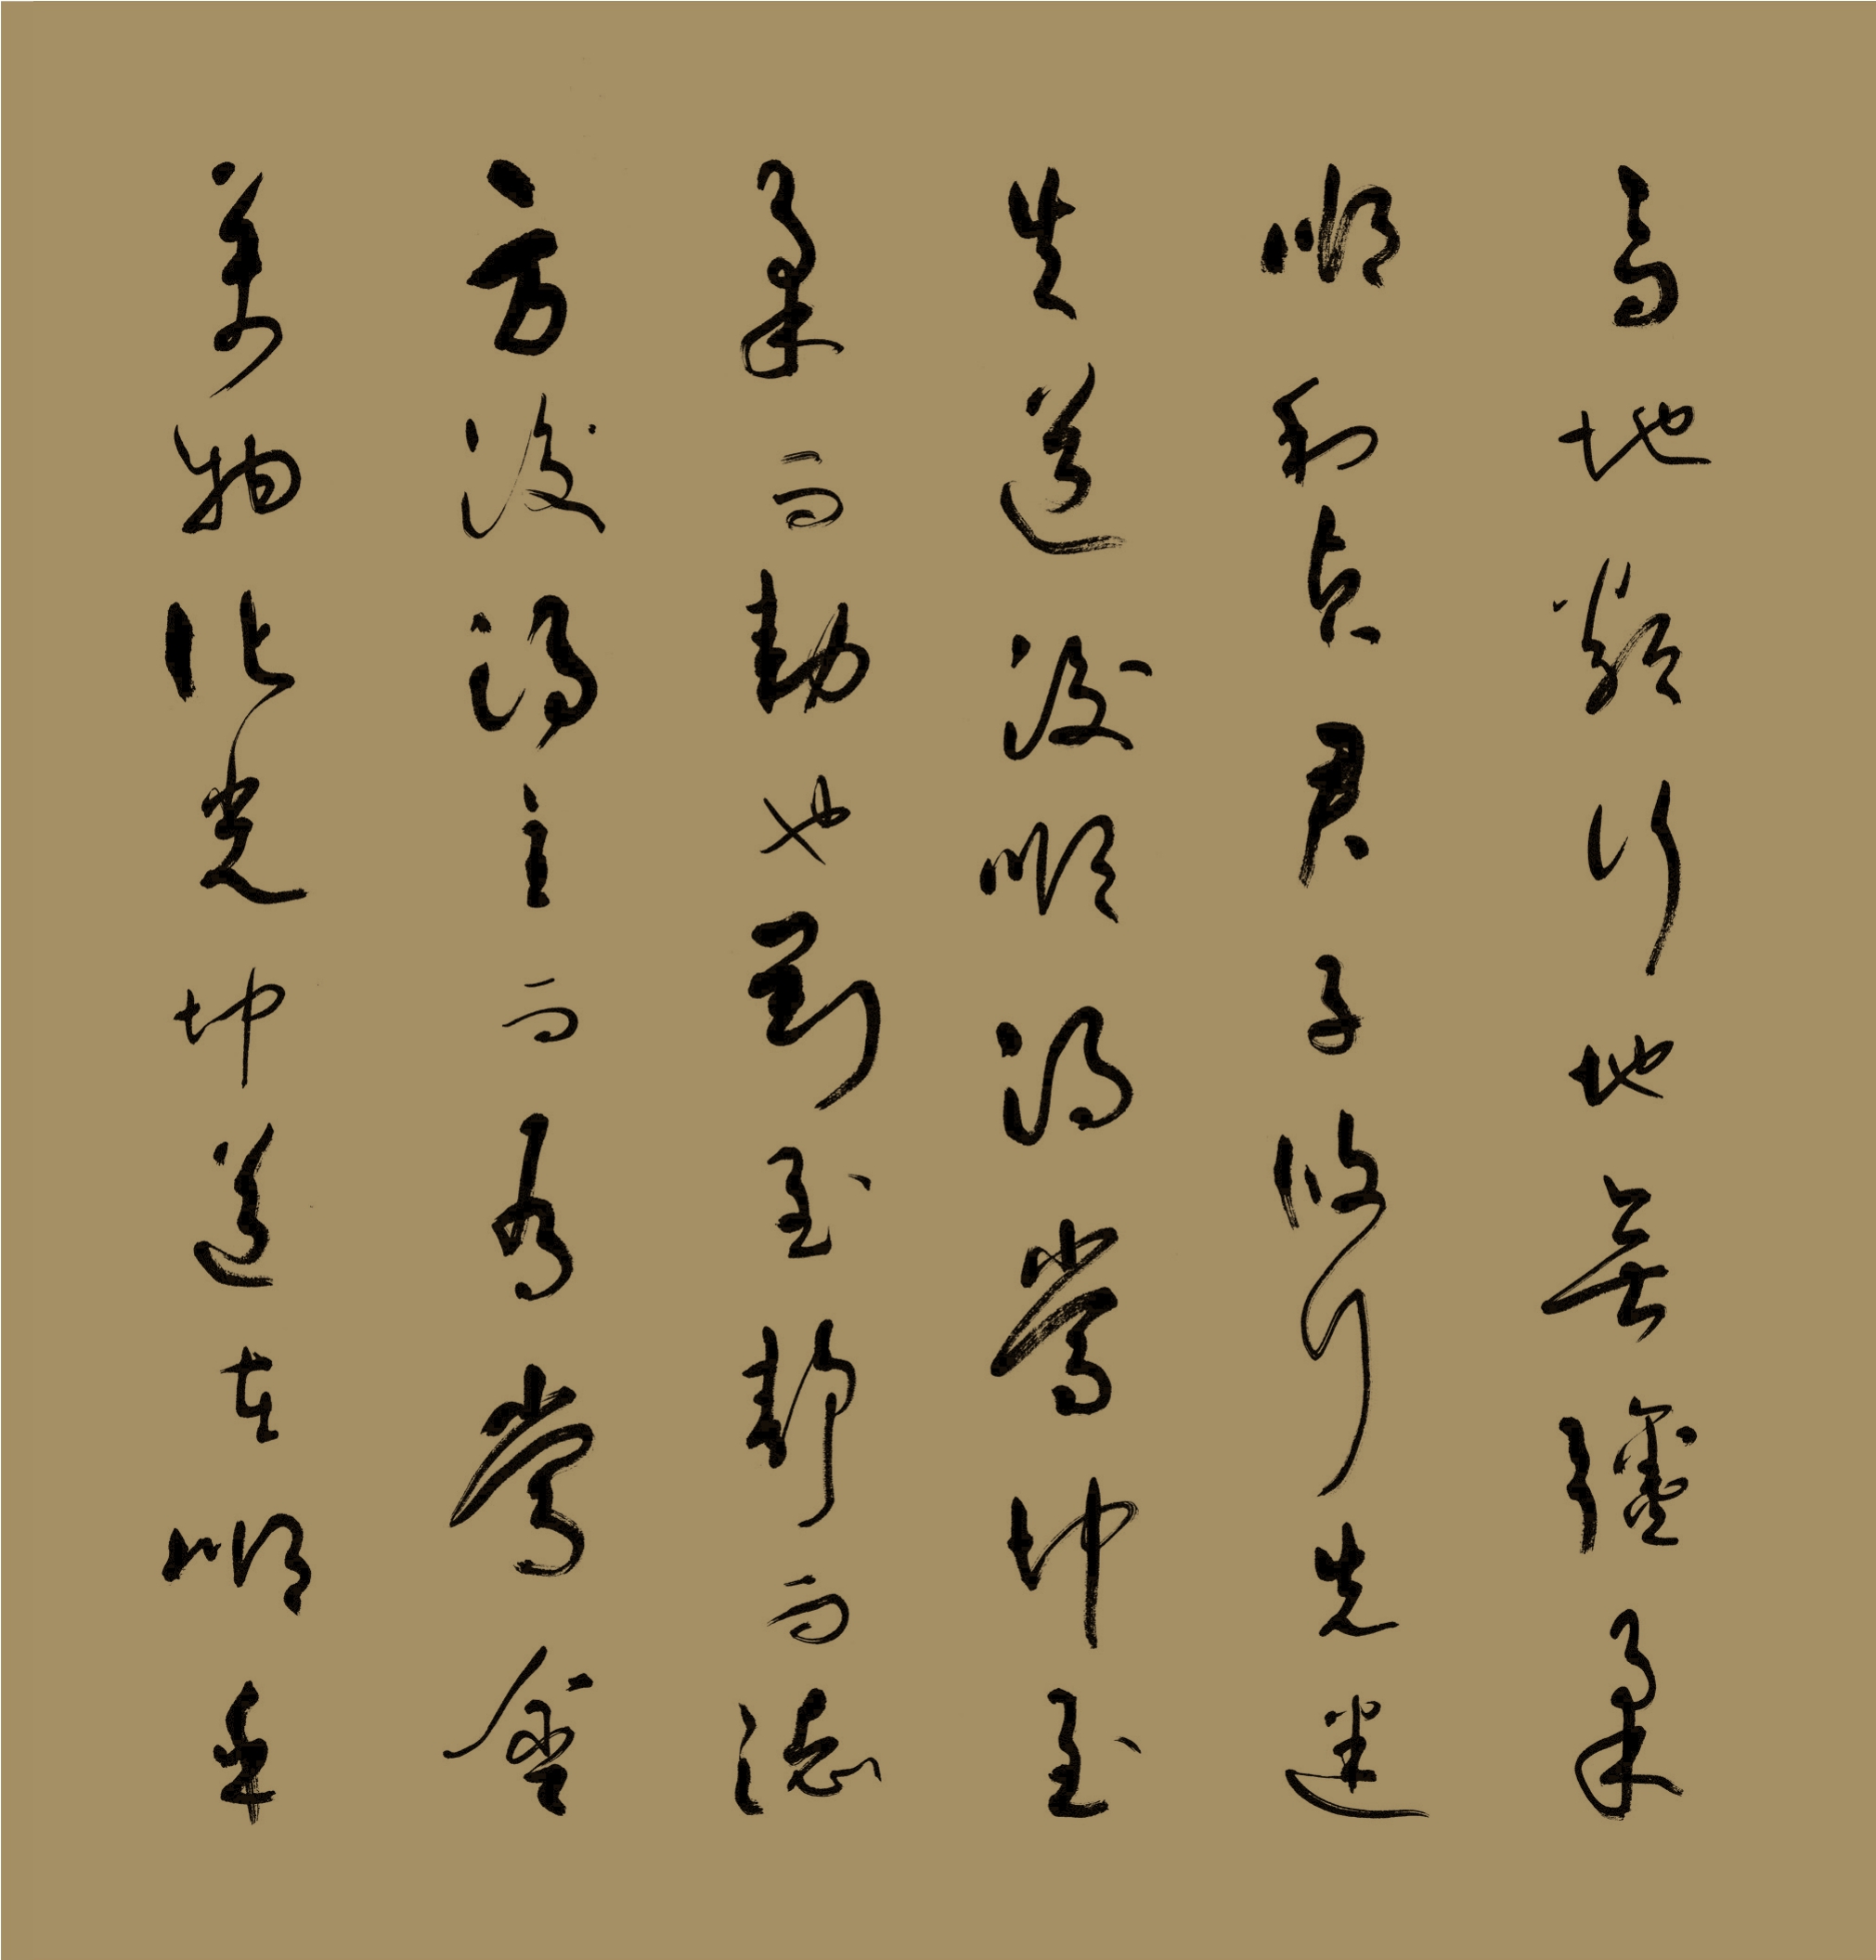 馬地類行地無疆柔
順利貞君子攸行先迷
失道後順得常坤至
柔而動也剛至靜而德
方後得主而為常含
萬物化光坤道順